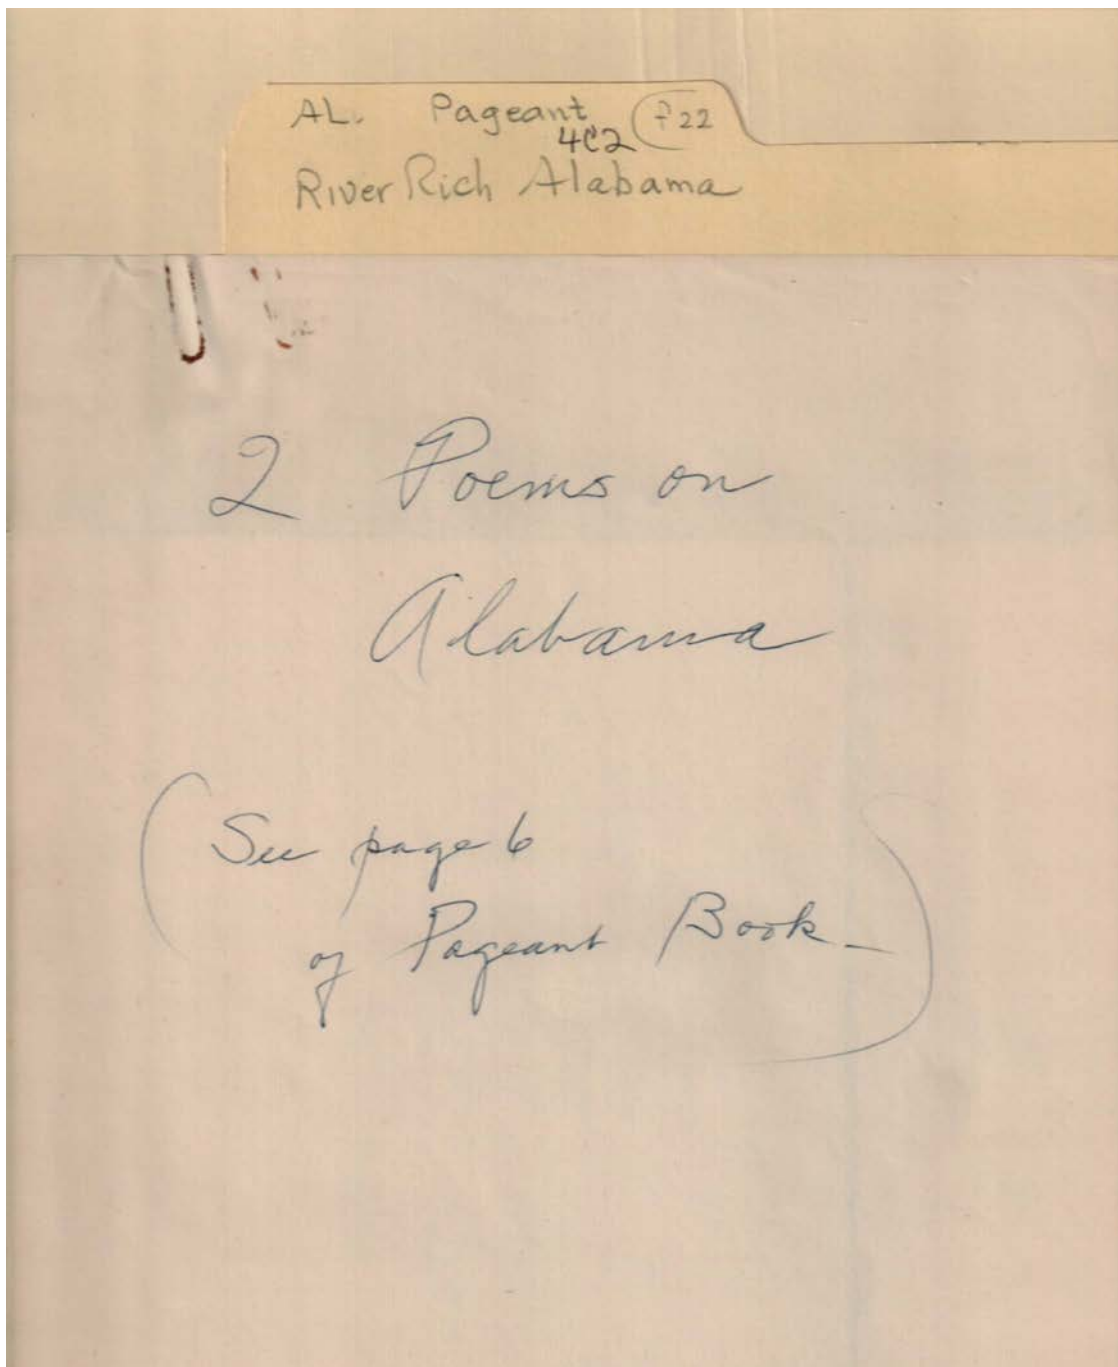 AL. Pageant f22
4C2
River Rich Alabama
2 Poems on
Alabama
(See page 6
of Pageant Book-)